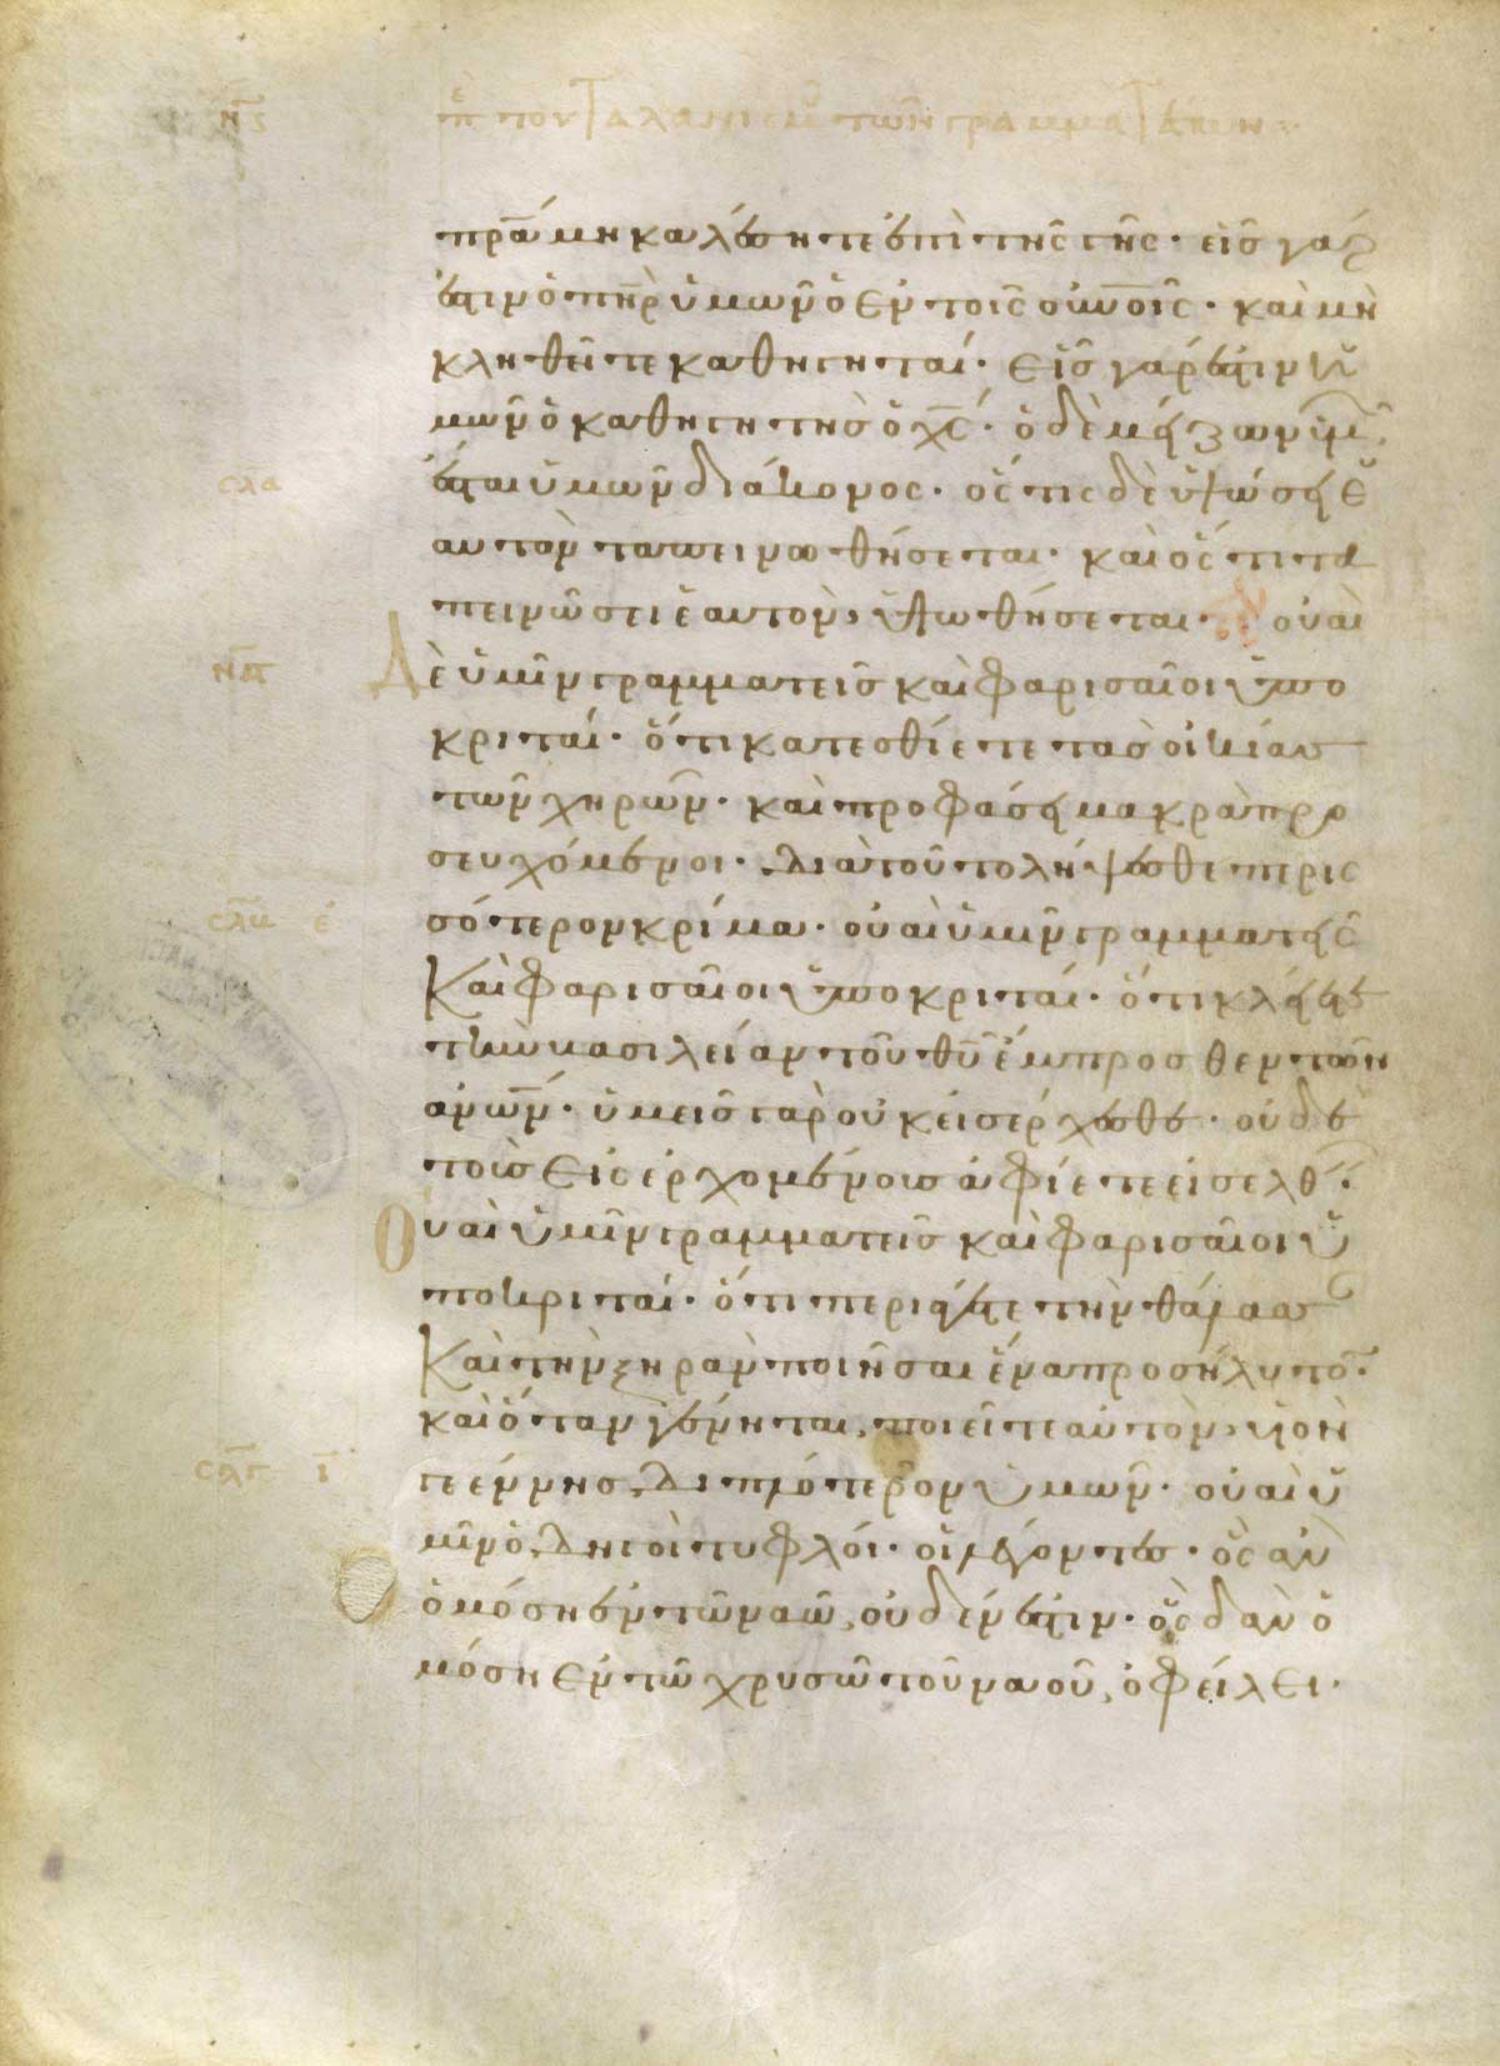 νϛ
πρ̅α μὴ καλέσητε ἐπὶ τῆς γῆς· εἷς γάρ
ἐστιν ὁ πη̅ρ ὑμῶν ὁ ἐν τοῖς οὐν̅οῖς· καὶ μὴ
κληθεῖτε καθηγηταί· εἷς γάρ ἐστιν ὑ
μῶν ὁ καθηγητὴς ὁ χς̅· ὁ δὲ μείζων ὑμῶν
ἔσται ὑμῶν διάκονος· ὅς τις δὲ ὑψώσει ἑ
αυτὸν ταπεινωθήσεται· καὶ ὅς τις τα
πεινώσει ἑαυτὸν, ὑψωθήσεται· οὐαὶ
δὲ ὑμῖν γραμματεῖς καὶ φαρισαῖοι ὑπο
κριταί· ὅτι κατεσθίετε τὰς οἰκίας
τῶν χηρῶν· καὶ προφάσει μακρὰ προ
σευχόμενοι· διὰ τοῦτο λήψεσθε περισ
σότερον κρίμα· οὐαὶ ὑμῖν γραμματεῖς
καὶ φαρισαῖοι ὑποκριταί· ὅτι κλείετε
τὴν βασιλείαν τοῦ θυ̅ ἔμπροσθεν τῶν
ἀνω̅ν· ὑμεῖς γὰρ οὐκ εἰσέρχεσθε· οὐδὲ
τοὺς εἰσερχομένους ἀφίετε εἰσελθεῖν·
Οὐαὶ ὑμῖν γραμματεῖς καὶ φαρισαῖοι ὑ
ποκριταί· ὅτι περιάγετε τὴν θάλασσαν
καὶ τὴν ξηρὰν ποιῆσαι ἕνα προσήλυτον·
καὶ ὅταν γένηται, ποιεῖτε αὐτὸν υἱὸν
γεέννης διπλότερον ὑμῶν· οὐαὶ ὑ
μῖν ὁδηγοὶ τυφλοί· οἱ λέγοντες· ὃς ἂν
ὀμόση ἐν τῶ ναῶ, οὐδέν ἐστιν· ὃς δ' ἂν ὀ
μόση ἐν τῶ χρυσῶ τοῦ ναοῦ, ὀφείλει·
σλα
σλβ ε
σλγ ι